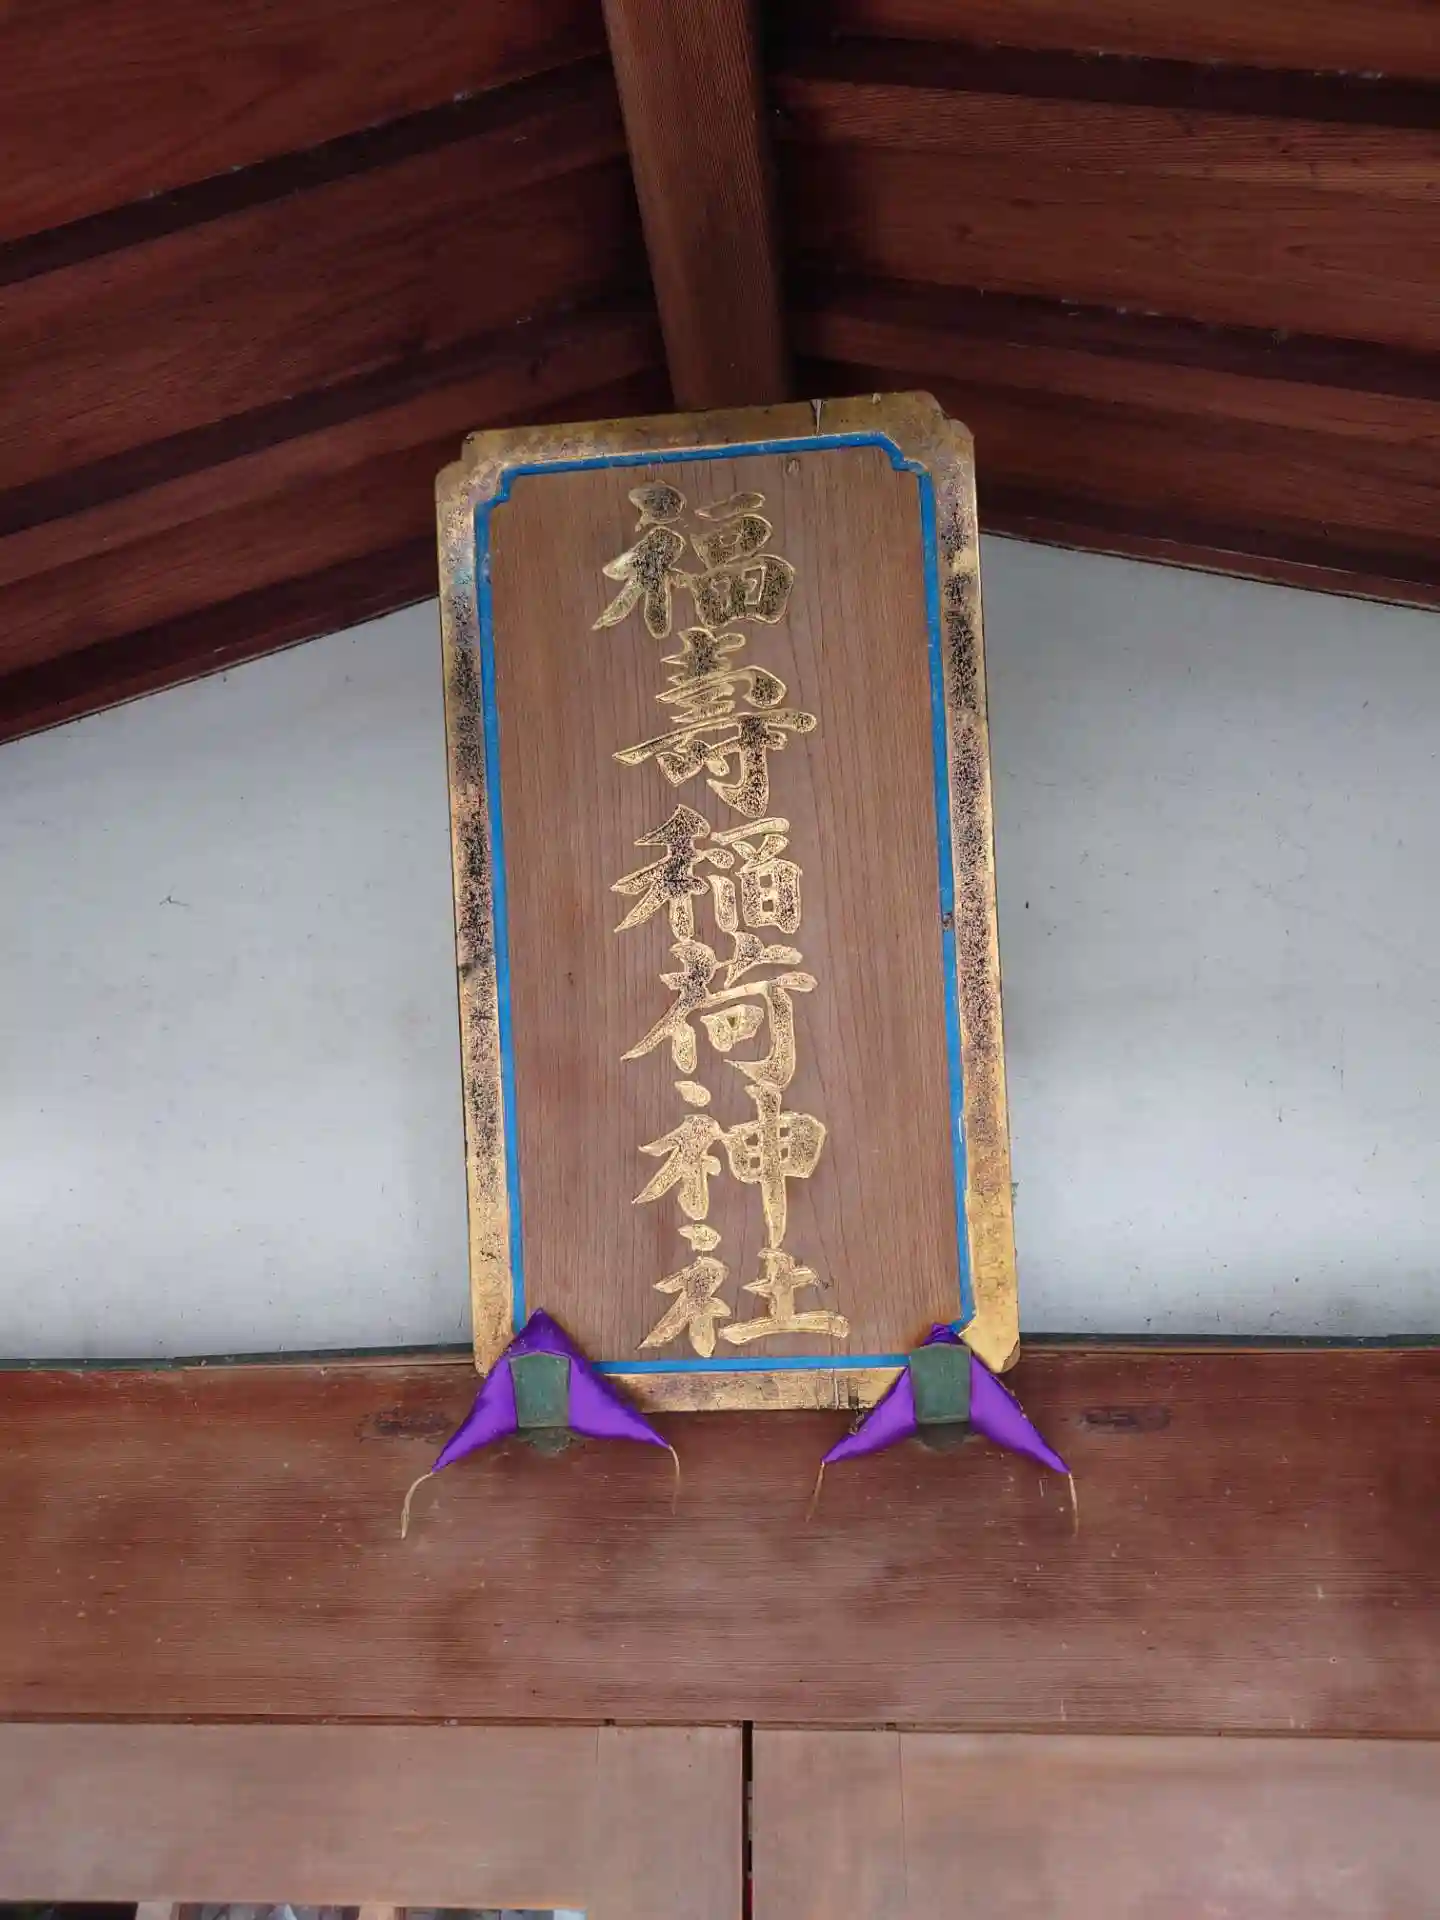 福壽稲荷神社